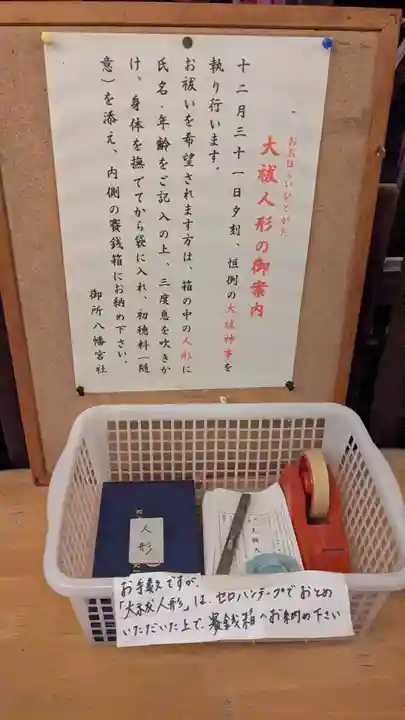 おおはらいひとがた
大祓人形の御案内
十二月三十一日夕刻、恒例の大祓神事を
執り行います。
お祓いを希望されます方は、箱の中の人形に
氏名・年齢をご記入の上、三度息を吹きか
け、身体を撫でてから袋に入れ、初穂料（随
意）を添え、内側の賽銭箱にお納め下さい。
御所八幡宮社
人形
お手数ですが、
「大祓人形」は、セロハンテープでおとめ
いただいた上で、賽銭箱へお納め下さい